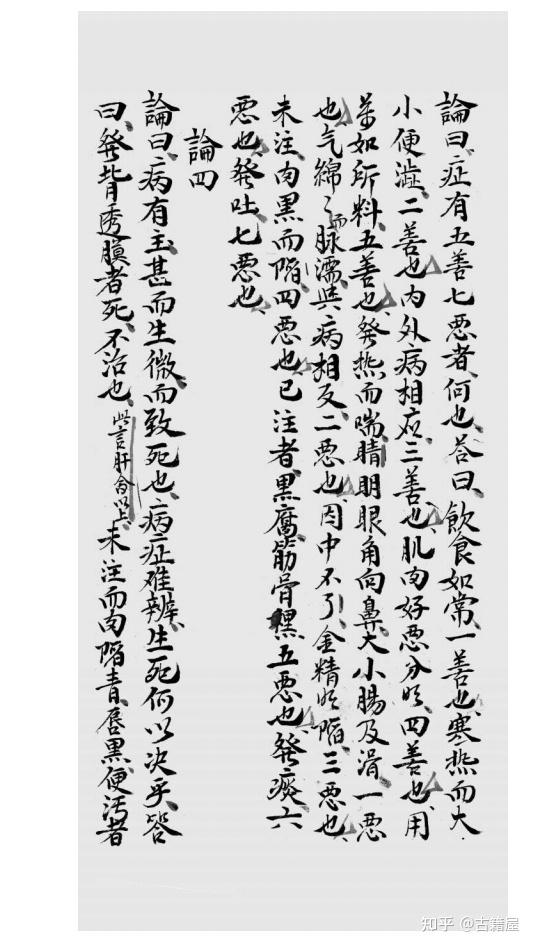 論曰、症有五善七惡者、何也、答曰、飲食如常、一善也、寒热而大
小便澁、二善也、内外病相应、三善也、肌肉好惡分明、四善也、用
薬如所料、五善也、発热而喘、睛明眼角向鼻、大小腸及滑、一惡
也、气綿〻而脉濡、與病相反、二惡也、目中不了、金精明陷、三惡也、
未注、肉黒而陷、四惡也、已注者、黒腐、筋骨黒、五惡也、発痰、六
惡也、発吐、七惡也、
論四
論曰、病有主、甚而生、微而致死也、病症難辨、生死何以決乎、答
曰、発背透膜者死、不治也、此言肝俞以上、未注而肉陷青、唇黒、便汚者
知乎 @古籍屋